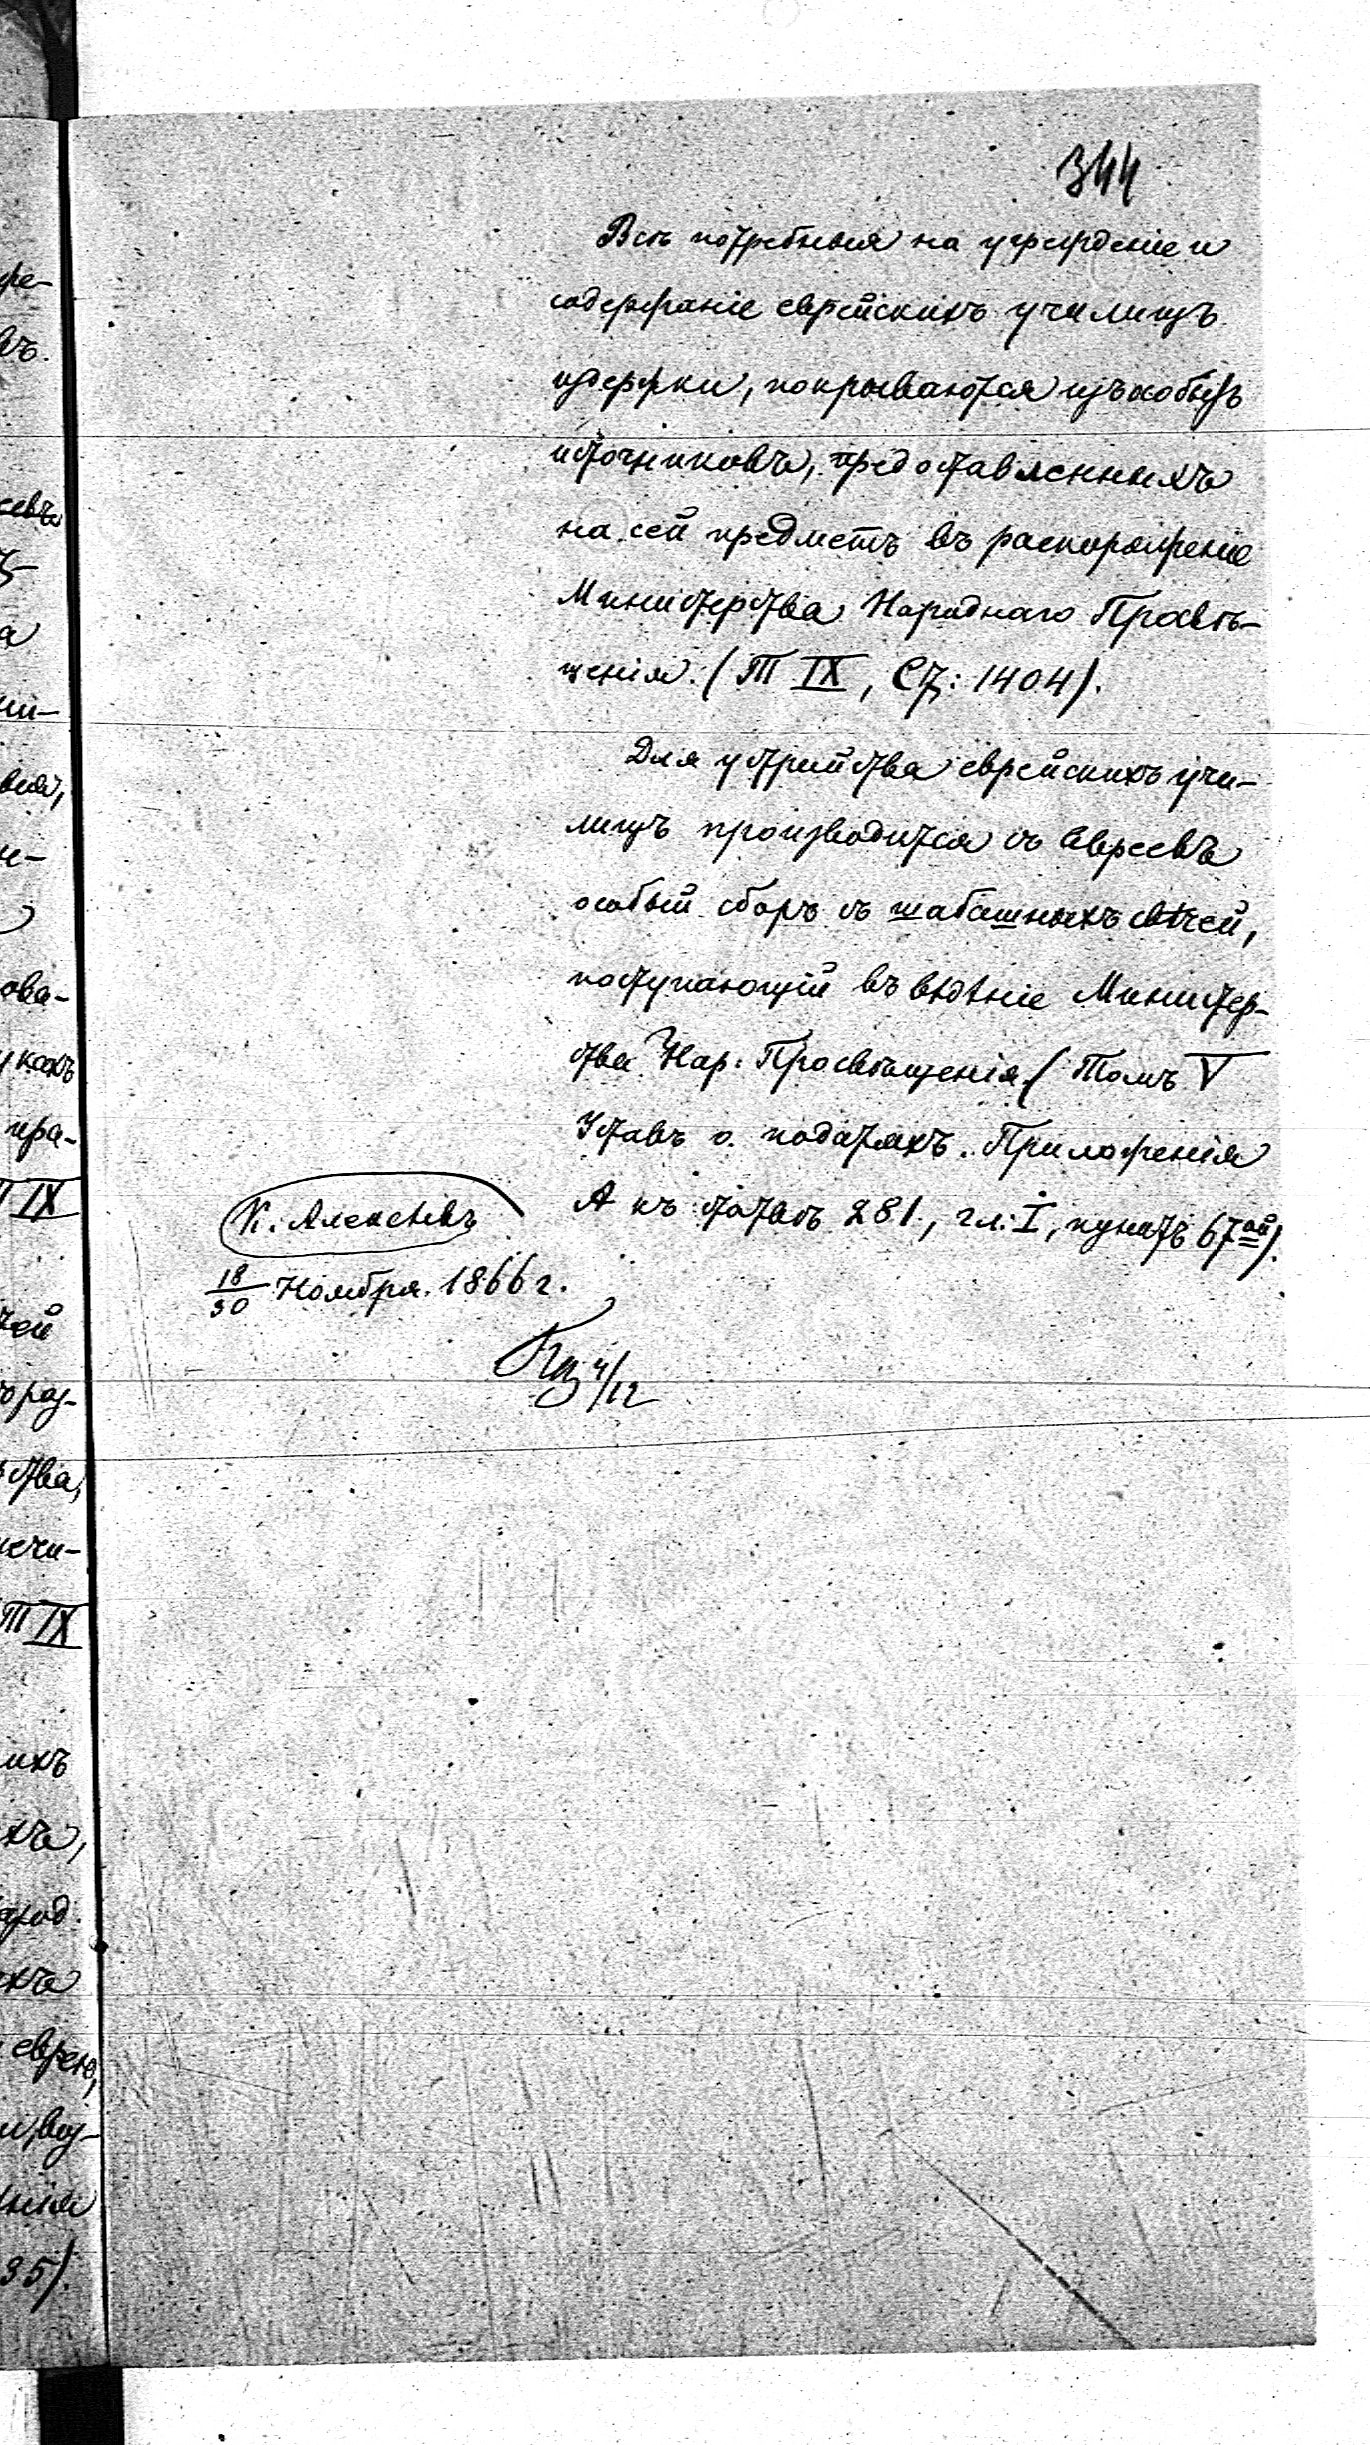 344
Всѣ потребныя на учрежденіе и
содержаніе еврейскихъ училищъ
издержки, покрываются изъ особыхъ
источниковъ, предоставленныхъ
на сей предметъ въ распоряженіе
Министерства Народнаго Просвѣ-
щенія. (Т IX, Ст: 1404).
Для устройства еврейскихъ учи-
лищъ производится съ Евреевъ
особый сборъ съ шабашныхъ свѣчей,
поступающій въ вѣдѣніе Министер-
ства Нар. Просвѣщенія. (Томъ V
Уставъ о податяхъ. Приложенія
А къ статьѣ 281, гл. I, пунктъ 67ой).
К. Алексѣевъ
18/30 Ноября 1866 г.
4/12
ре-
въ.
севъ
а
ни-
н-
ова-
укахъ
пра-
IX
той
ораз-
ства,
печи-
Т IX
ихъ
хъ,
арод.
ыхъ
еврею,
воз-
нія
35).